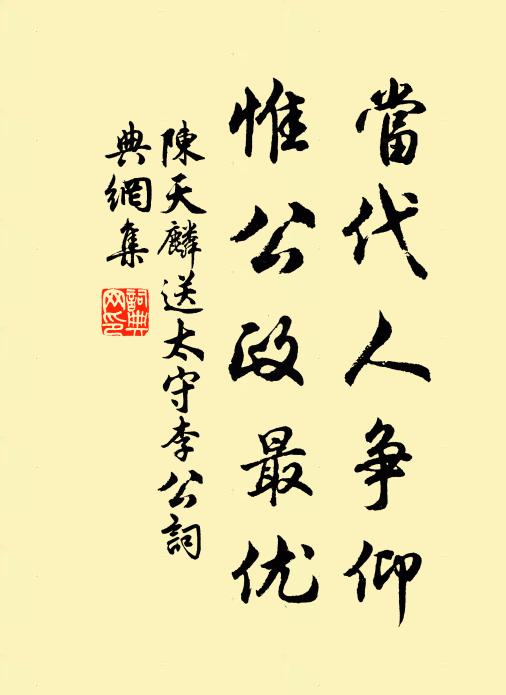 當代人争仰
惟公政最优
陳天麟送太守李公詞
典網集
詞典網印